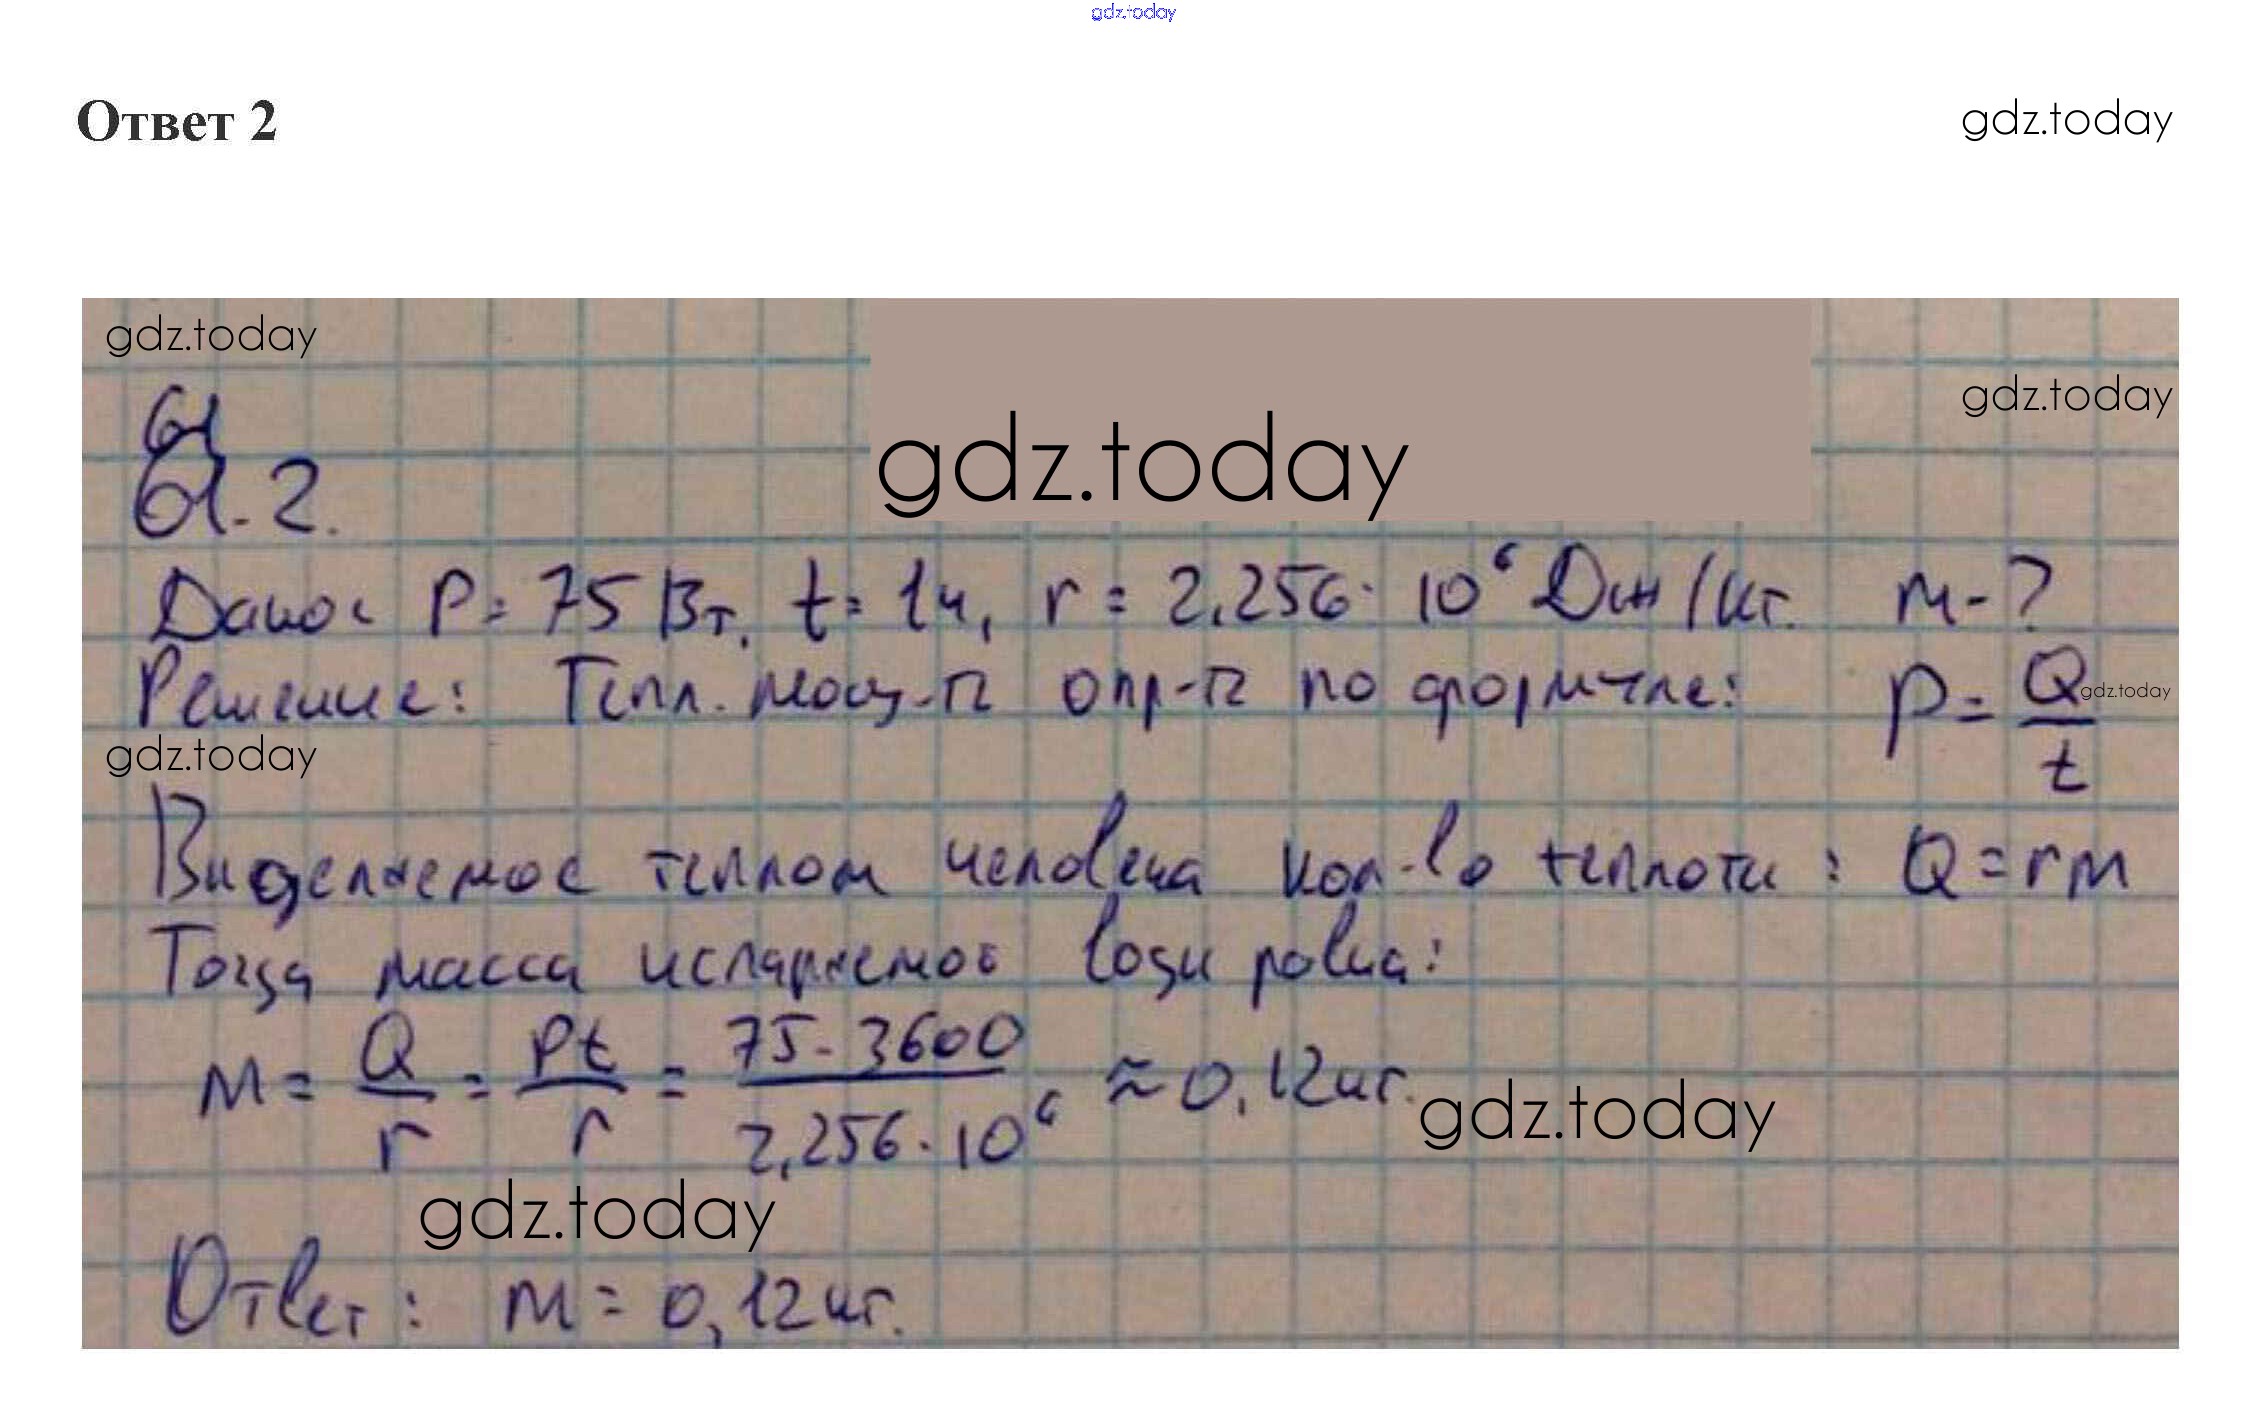 gdz.today
Ответ 2
gdz.today
gdz.today
gdz.today
gdz.today
61
61.2.
Дано: P = 75 Вт, t = 1ч, r = 2,256 · 10⁶ Дж/кг. m - ?
Решение: Тепл. мощ-ть опр-ть по формуле: P = Q/t
gdz.today
gdz.today
Выделяемое теплом человека кол-во теплоты: Q = rm
Тогда масса испаряемой воды равна:
m = Q/r = Pt/r = 75 · 3600 / 2,256 · 10⁶ ≈ 0,12 кг.
gdz.today
gdz.today
Ответ: m = 0,12 кг.